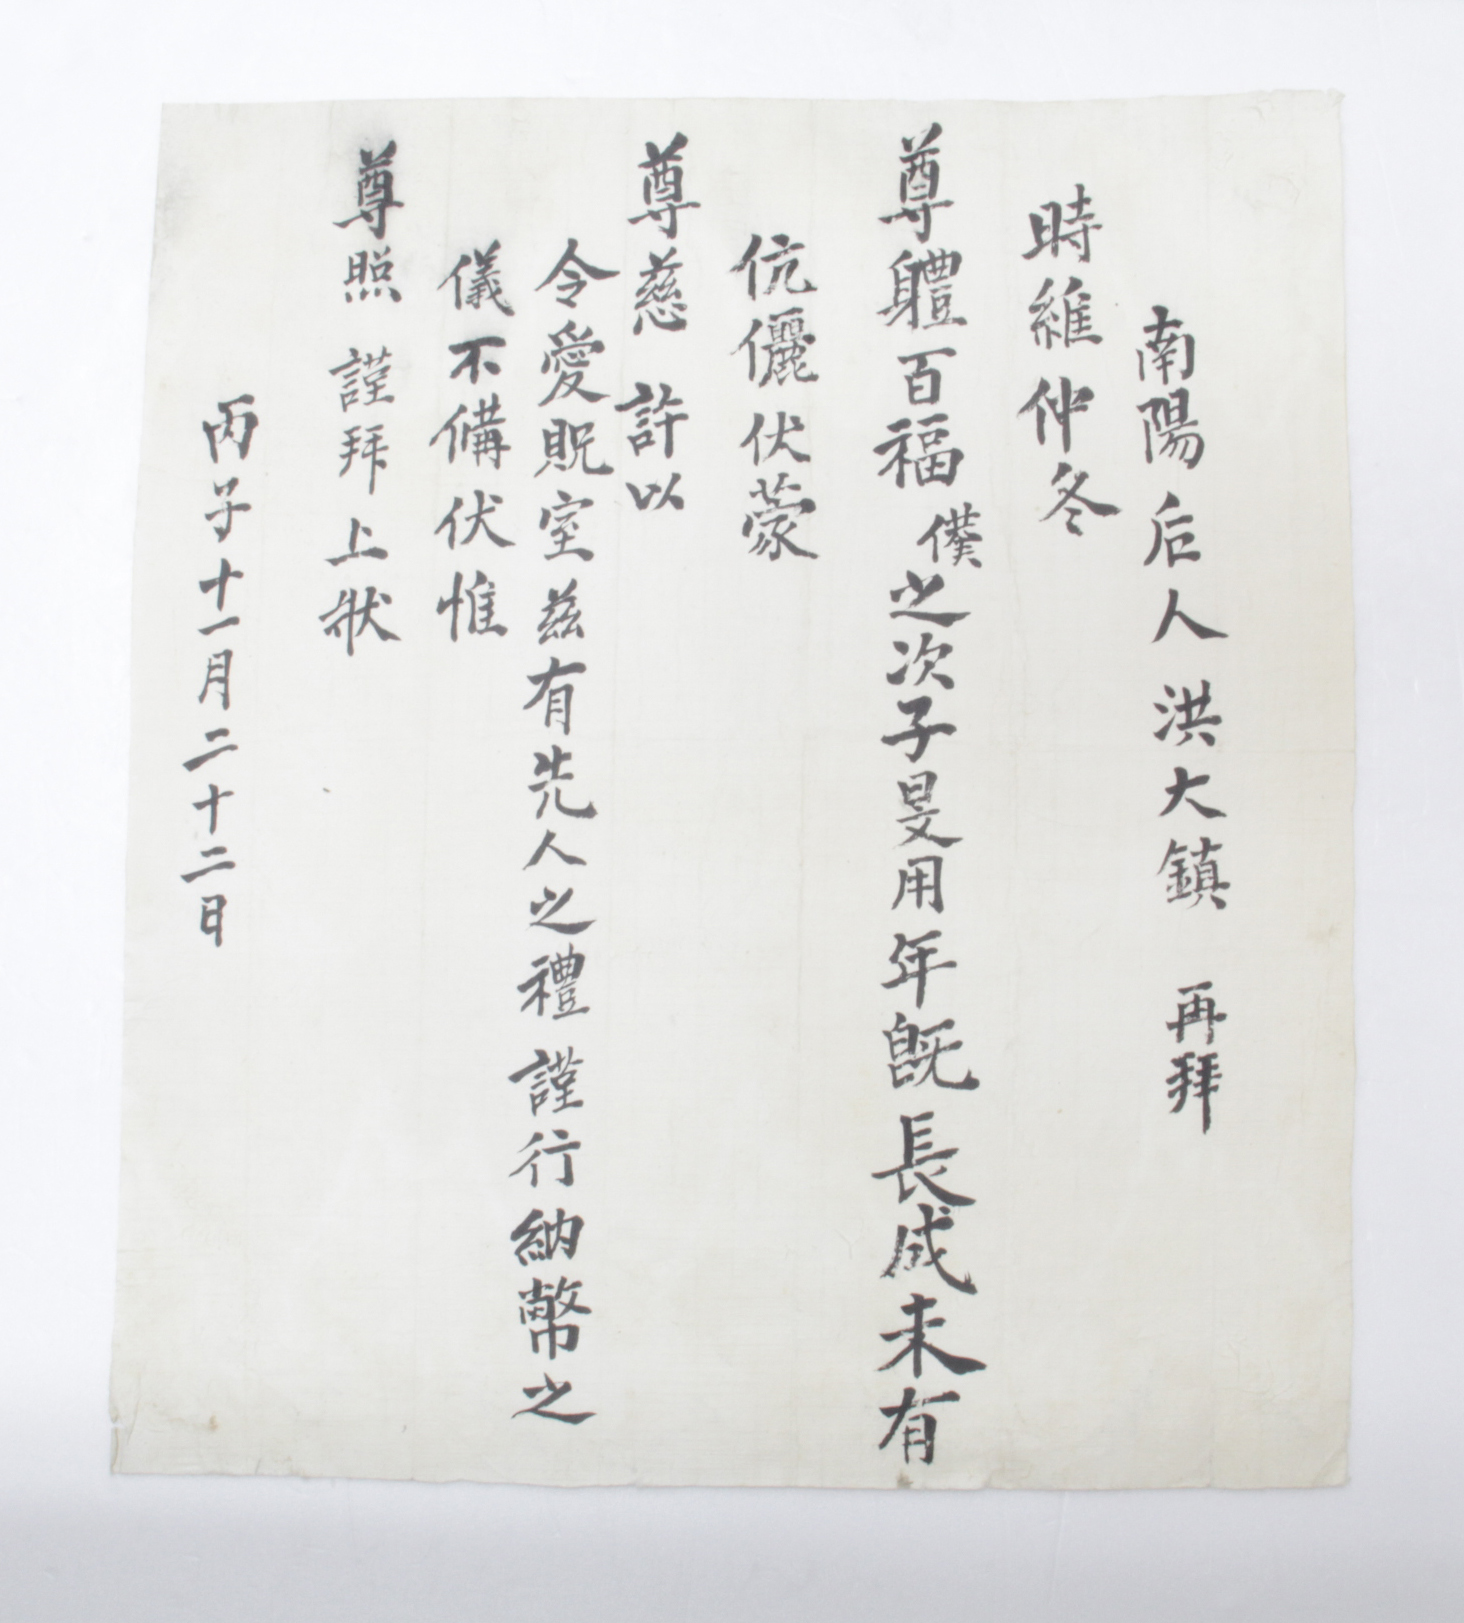 南陽后人洪大鎮 再拜
時維仲冬
尊軆百福僕之次子旻用年旣長成未有
伉儷伏蒙
尊慈 許以
令愛貺室玆有先人之禮謹行納幣之
儀不備伏惟
尊照 謹拜上狀
丙子十一月二十二日